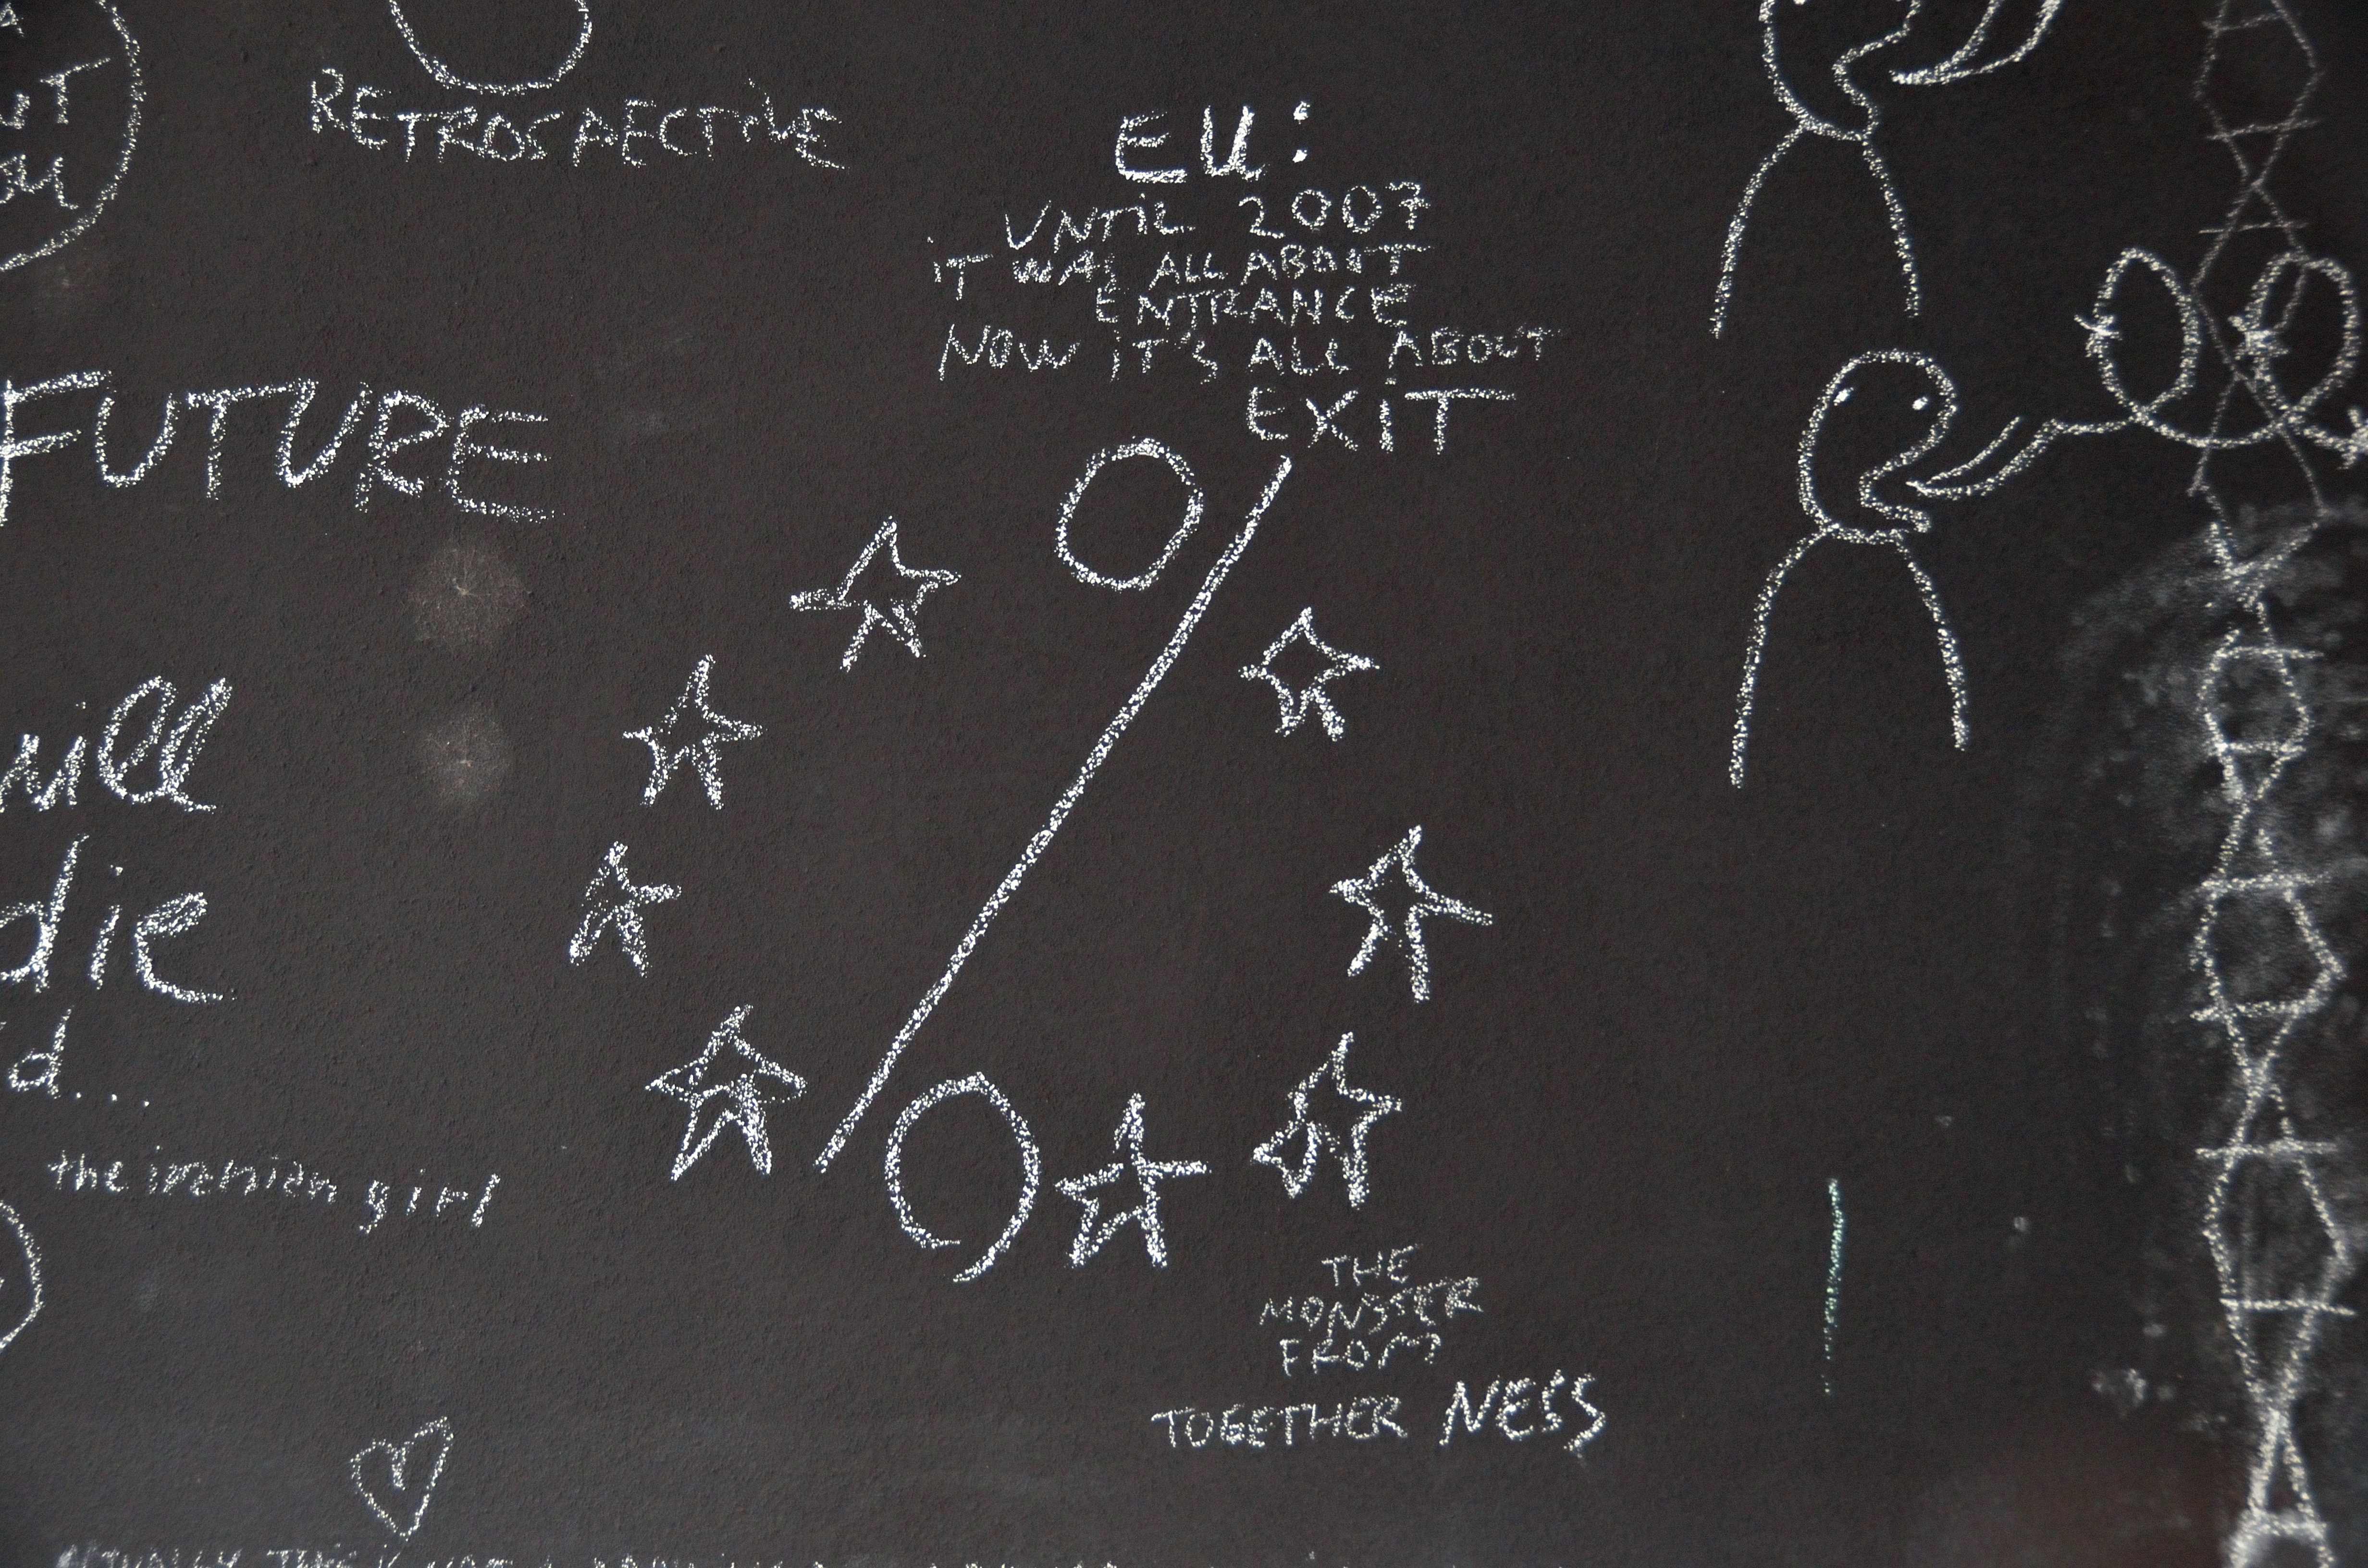 RETROSPECTIVE
EU:
UNTIL 2007
IT WAS ALL ABOUT
ENTRANCE
NOW IT'S ALL ABOUT
EXIT
FUTURE
will
die
d...
the iranian girl
THE
MONSTER
FROM
TOGETHERNESS